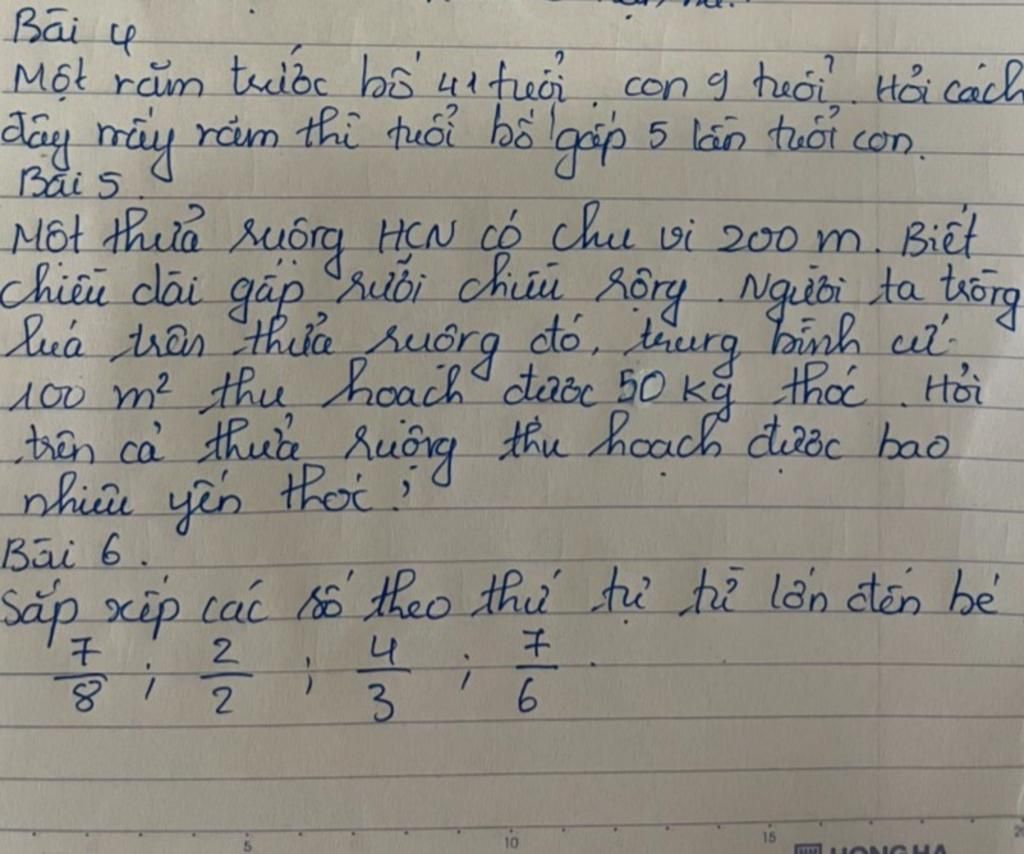 Bài 4
Một năm trước bố 41 tuổi, con 9 tuổi. Hỏi cách
đây mấy năm thì tuổi bố gấp 5 lần tuổi con.
Bài 5.
Một thửa ruộng HCN có chu vi 200 m. Biết
chiều dài gấp rưỡi chiều rộng. Người ta trồng
lúa trên thửa ruộng đó, trung bình cứ
100 m² thu hoạch được 50 kg thóc. Hỏi
trên cả thửa ruộng thu hoạch được bao
nhiêu yến thóc?
Bài 6.
Sắp xếp các số theo thứ tự từ lớn đến bé
7/8 ; 2/2 ; 4/3 ; 7/6.
5 10 15
HONG HA